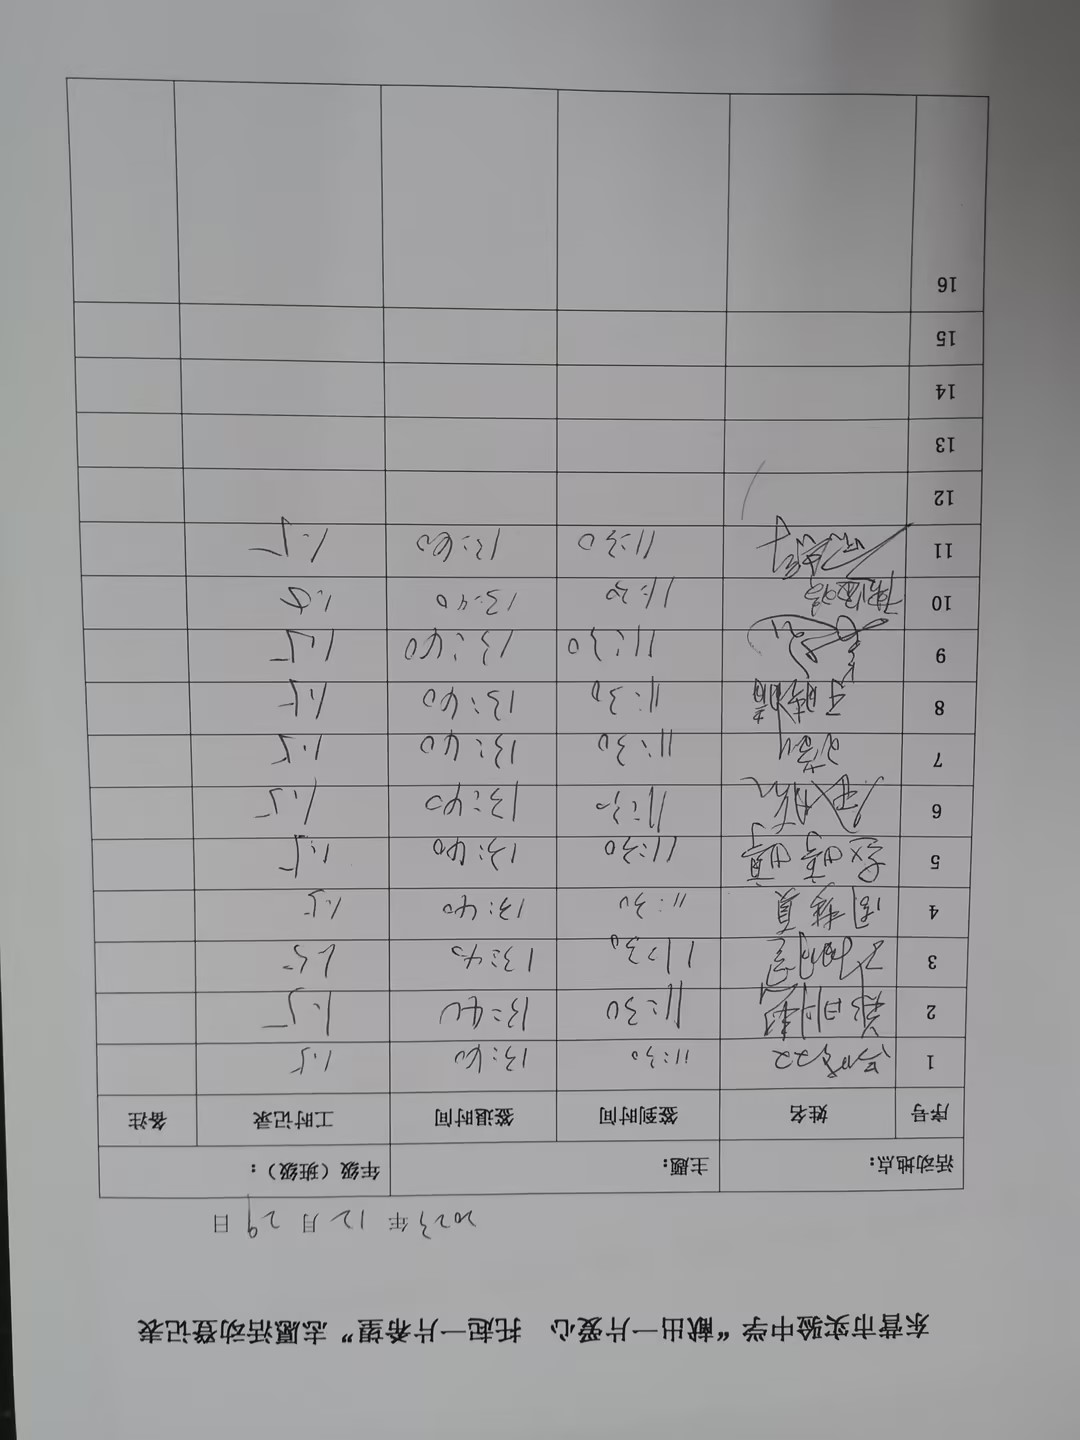 东营市实验中学“献出一片爱心 托起一片希望”志愿活动登记表
2023年 12月 29日
活动地点： 主题： 年级（班级）：
序号 姓名 签到时间 签退时间 工时记录 备注
1 11:30 13:40 1.5
2 11:30 13:40 1.5
3 11:30 13:40 1.5
4 11:30 13:40 1.5
5 11:30 13:40 1.5
6 11:30 13:40 1.5
7 11:30 13:40 1.5
8 11:30 13:40 1.5
9 11:30 13:40 1.5
10 11:30 13:40 1.5
11 11:30 13:40 1.5
12
13
14
15
16